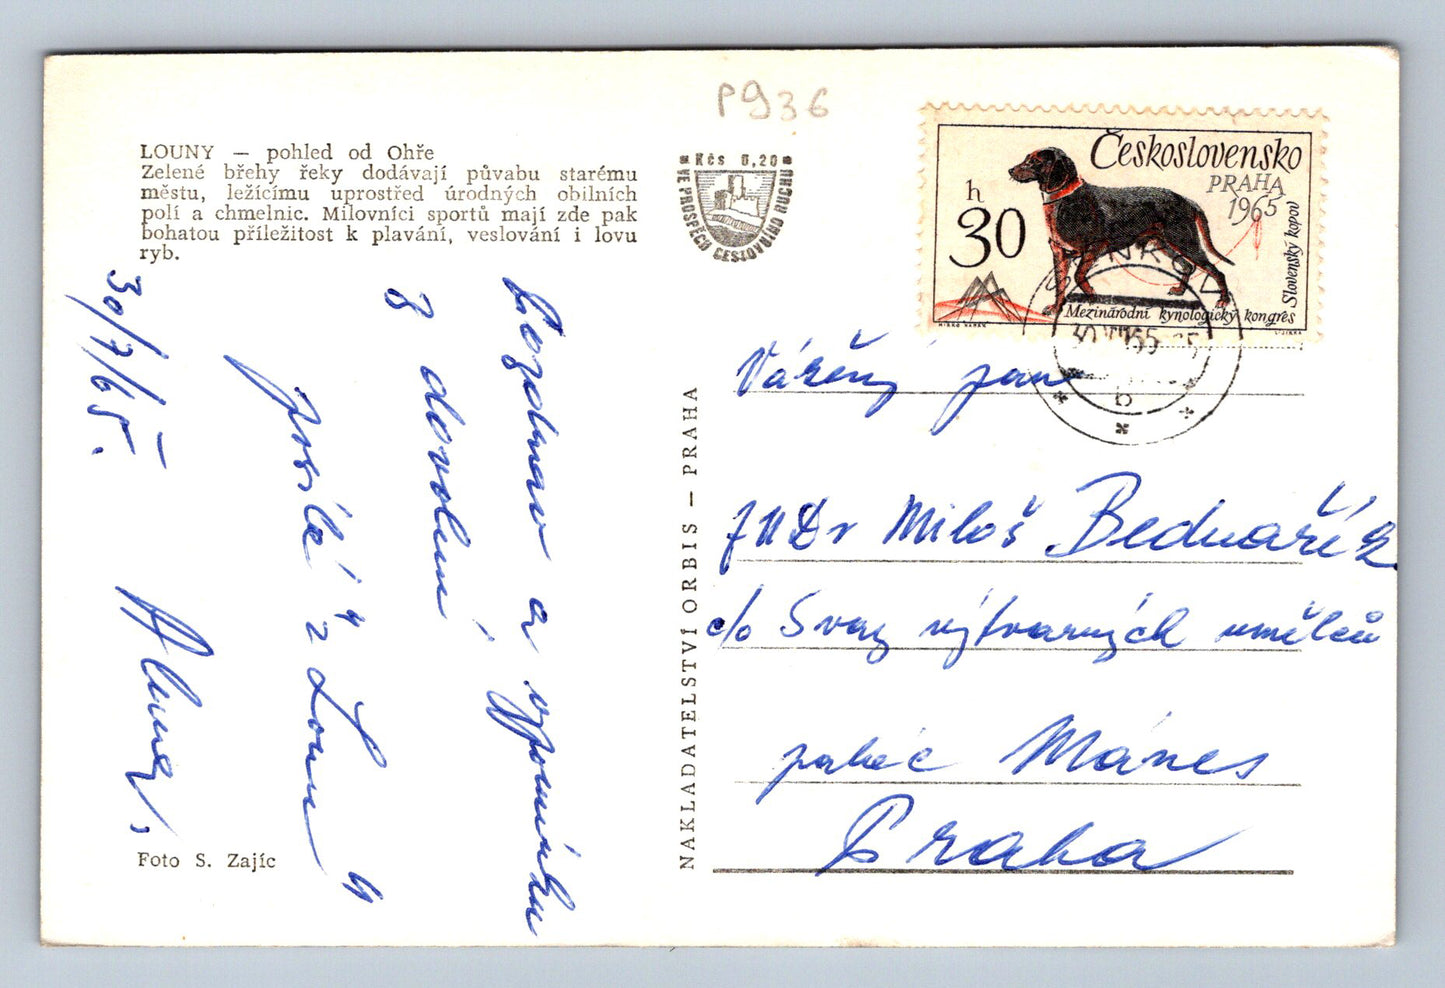 P936
LOUNY — pohled od Ohře
Zelené břehy řeky dodávají půvabu starému
městu, ležícímu uprostřed úrodných obilních
polí a chmelnic. Milovníci sportů mají zde pak
bohatou příležitost k plavání, veslování i lovu
ryb.
Kčs 0,20
VE PROSPĚCH CESTOVNÍHO RUCHU
Československo
PRAHA
1965
h
30
Slovenský kopov
Mezinárodní kynologický kongres
Pozdrav a vzpomínku
z dovolené
posílá z Loun
30/7/65.
Foto S. Zajíc
NAKLADATELSTVÍ ORBIS — PRAHA
Vážený pan
JUDr Miloš Bednařík
c/o Svaz výtvarných umělců
palác Mánes
Praha